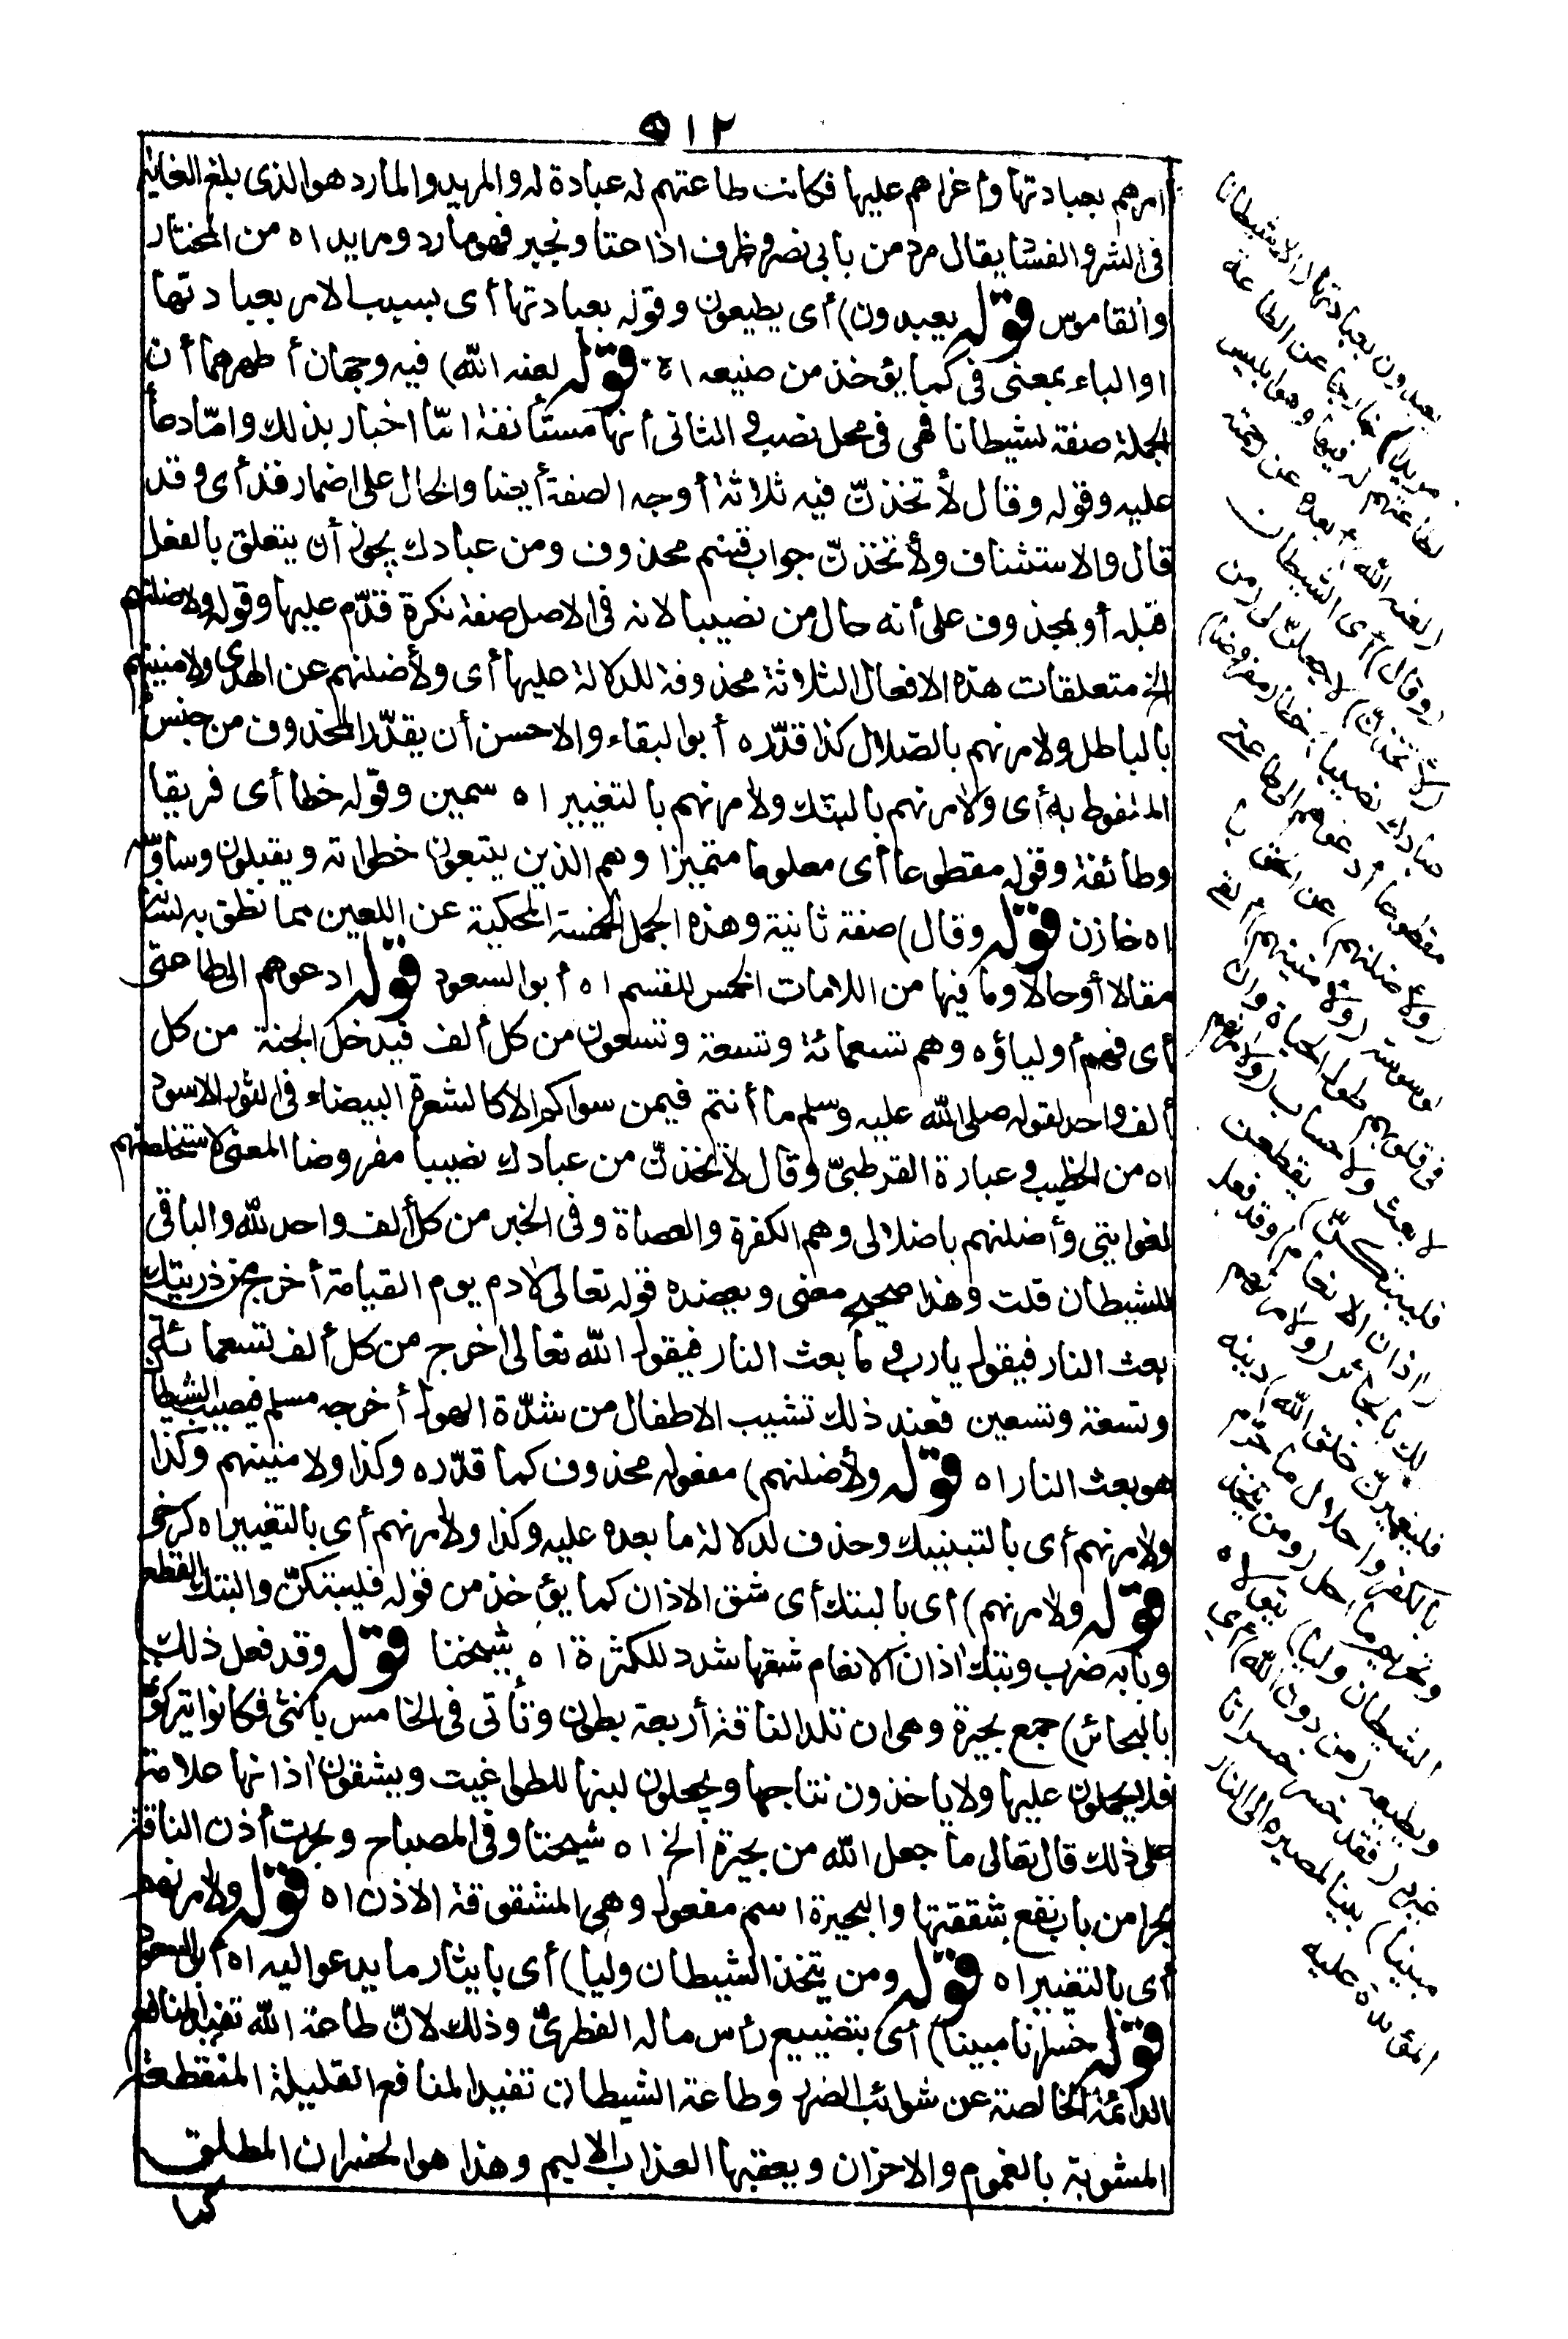 ٥١٢
أمرهم بعبادتها واغراهم عليها فكانت طاعتهم له عبادة له والمريد والمارد هو الذى بلغ الغاية
فى الشر والفساد يقال مرد من بابى نصر وظرف اذا عتا وتجبر فهو مارد ومريد اه من المختار
والقاموس قوله يعبدون) أى يطيعون وقوله بعبادتها أى بسبب الامر بعبادتها
او الباء بمعنى فى كما يؤخذ من صنيعه اه قوله لعنه الله) فيه وجهان أظهرهما أن
الجملة صفة لشيطانا فهى فى محل نصب و الثانى أنها مستأنفة امّا اخبار بذلك وامّا دعاً
عليه وقوله وقال لأتخذنّ فيه ثلاثة أوجه الصفة أيضا والحال على اضمار قد أى وقد
قال والاستئناف ولأتخذنّ جواب قسم محذوف ومن عبادك يجوز أن يتعلق بالفعل
قبله أو بمحذوف على أنه حال من نصيبا لانه فى الاصل صفة نكرة قدّم عليها وقوله ولاضلنهم
الخ متعلقات هذه الافعال الثلاثة محذوفة للدلالة عليها أى ولأضلنهم عن الهدى ولامنينهم
بالباطل ولامرنهم بالضلال كذا قدّره أبو البقاء والاحسن أن يقدّر المحذوف من جنس
الملفوظ به أى ولآمرنهم بالبتك ولامرنهم بالتغيير اه سمين وقوله خطا أى فريقا
وطائفة وقوله مقطوعا أى معلوما متميزا وهم الذين يتبعون خطواته ويقبلون وساوسه
اه خازن قوله وقال) صفة ثانية وهذه الجمل الخمسة المحكية عن اللعين مما نطق به لسانه
مقالا أو حالا وما فيها من اللامات الخمس للقسم اه أبو السعود قوله ادعوهم الى طاعتى
أى فهم أولياؤه وهم تسعمائة وتسعة وتسعون من كل ألف فيدخل الجنة من كل
ألف واحد لقوله صلى الله عليه وسلم ما أنتم فيمن سواكم الا كالشعرة البيضاء فى الثور الاسود
اه من الخطيب و عبارة القرطبىّ وقال لأتخذنّ من عبادك نصيبا مفروضا المعنى لاستخلصنهم
لغوايتى وأضلنهم باضلالى وهم الكفرة والعصاة وفى الخبر من كل ألف واحد لله والباقى
للشيطان قلت وهذا صحيح معنى ويعضده قوله تعالى لآدم يوم القيامة أخرج من ذريتك
بعث النار فيقول يارب و ما بعث النار فيقول الله تعالى اخرج من كل ألف تسعمائة
وتسعة وتسعين فعند ذلك تشيب الاطفال من شدّة الهول أخرجه مسلم فنصيب الشيطان
هو بعث النار اه قوله ولأضلنهم) مفعوله محذوف كما قدّره وكذا ولامنينهم وكذا
ولامرنهم أى بالتبتيك وحذف لدلالة ما بعده عليه وكذا ولأمرنهم أى بالتغيير اه كرخى
قوله ولامرنهم) أى بالبتك أى شق الاذان كما يؤخذ من قوله فليبتكنّ والبتك القطع
وبابه ضرب وبتك اذان الانعام شقها شدد للكثرة اه شيخنا قوله وقد فعل ذلك
بالبحائر) جمع بحيرة وهى ان تلد الناقة أربعة بطون وتأتى فى الخامس بانثى فكانوا يتركونها
فلا يحملون عليها ولا ياخذون نتاجها ويجعلون لبنها للطواغيت ويشقون اذانها علامة
على ذلك قال تعالى ما جعل الله من بحيرة الخ اه شيخنا وفى المصباح وبحرت أذن الناقة
بحرا من باب نفع شققتها والبحيرة اسم مفعول وهى المشقوقة الاذن اه قوله ولامرنهم
أى بالتغيير اه قوله ومن يتخذ الشيطان وليا) أى بايثار ما يدعو اليه اه أبو السعود
قوله خسرانا مبينا) أى بتضييع رأس ماله الفطرىّ وذلك لانّ طاعة الله تفيد المنافع
الدائمة الخالصة عن شوائب الضرر وطاعة الشيطان تفيد المنافع القليلة المنقطعة
المشوبة بالغموم والاحزان ويعقبها العذاب الاليم وهذا هو الخسران المطلق
كما
يعبدون بعبادتها (الا شيطانا
مريدا) خارجا عن الطاعة
لطاعتهم له فيها وهو ابليس
(لعنه الله) أبعده عن رحمته
(وقال) أى الشيطان
(لأتخذنّ) لاجعلنّ لى (من
عبادك نصيبا) حظا (مفروضا)
مقطوعا أدعوهم الى طاعتى
(ولاضلنهم) عن الحق با
لوسوسة (ولامنينهم) ألقى
فى قلوبهم طول الحياة وان
لا بعث ولا حساب (ولامرنهم
فليبتكنّ) يقطعن
(اذان الانعام) وقد فعل
ذلك بالبحائر (ولامرنهم
فليغيرنّ خلق الله) دينه
بالكفر واحلال ما حرّم
وتحريم ما احل (ومن يتخذ
الشيطان وليا) يتولاه
ويطيعه (من دون الله) أى
غيره (فقد خسر خسرانا
مبينا) بينا لمصيره الى النار
المؤبدة عليه